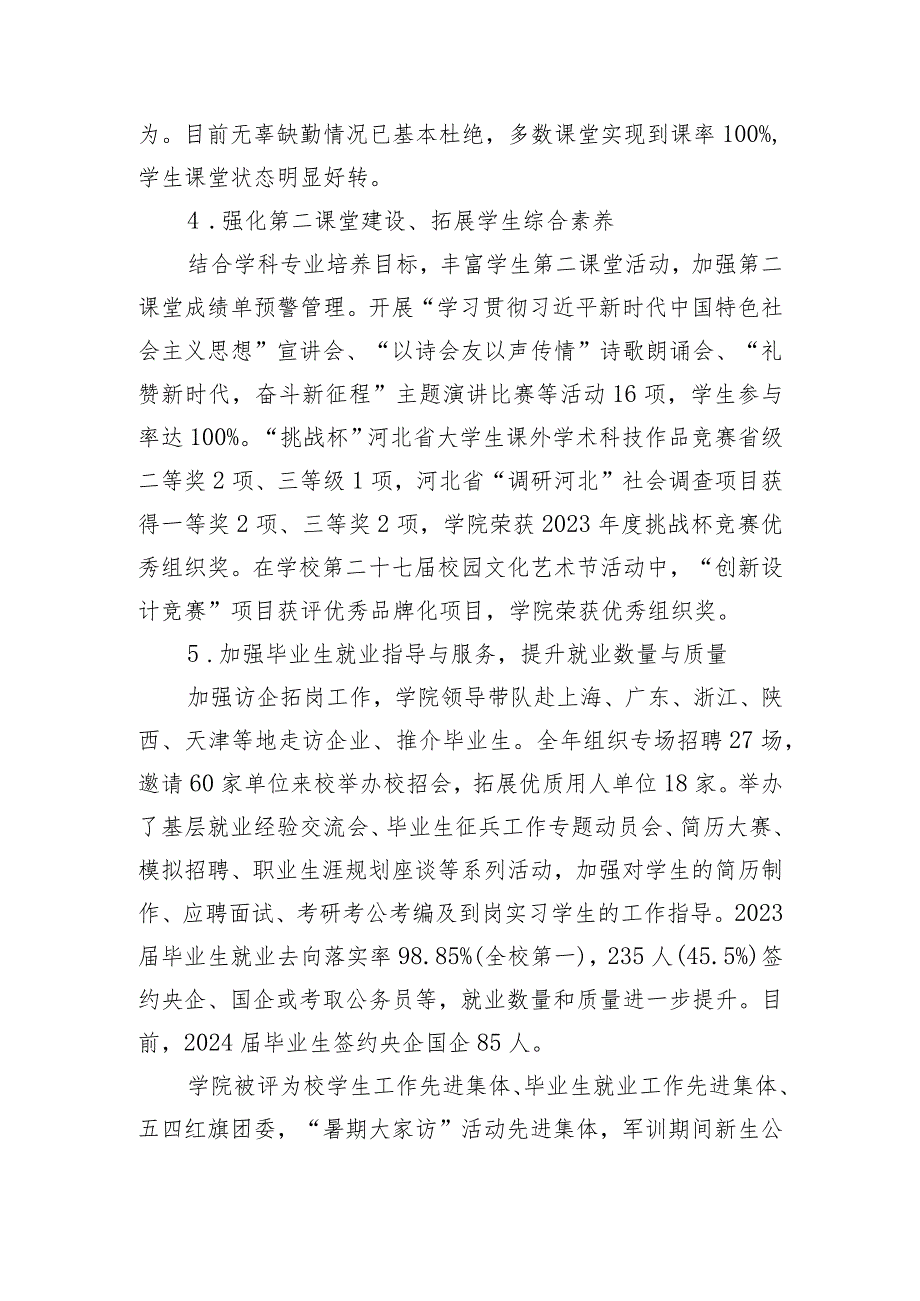 为。目前无辜缺勤情况已基本杜绝，多数课堂实现到课率 100%,
学生课堂状态明显好转。
4 .强化第二课堂建设、拓展学生综合素养
结合学科专业培养目标，丰富学生第二课堂活动，加强第二
课堂成绩单预警管理。开展“学习贯彻习近平新时代中国特色社
会主义思想”宣讲会、“以诗会友以声传情”诗歌朗诵会、“礼
赞新时代，奋斗新征程”主题演讲比赛等活动 16 项，学生参与
率达 100%。“挑战杯”河北省大学生课外学术科技作品竞赛省级
二等奖 2 项、三等级 1 项，河北省“调研河北”社会调查项目获
得一等奖 2 项、三等奖 2 项，学院荣获 2023 年度挑战杯竞赛优
秀组织奖。在学校第二十七届校园文化艺术节活动中，“创新设
计竞赛”项目获评优秀品牌化项目，学院荣获优秀组织奖。
5 .加强毕业生就业指导与服务，提升就业数量与质量
加强访企拓岗工作，学院领导带队赴上海、广东、浙江、陕
西、天津等地走访企业、推介毕业生。全年组织专场招聘 27 场，
邀请 60 家单位来校举办校招会，拓展优质用人单位 18 家。举办
了基层就业经验交流会、毕业生征兵工作专题动员会、简历大赛、
模拟招聘、职业生涯规划座谈等系列活动，加强对学生的简历制
作、应聘面试、考研考公考编及到岗实习学生的工作指导。2023
届毕业生就业去向落实率 98.85%(全校第一)，235 人(45.5%)签
约央企、国企或考取公务员等，就业数量和质量进一步提升。目
前，2024 届毕业生签约央企国企 85 人。
学院被评为校学生工作先进集体、毕业生就业工作先进集体、
五四红旗团委，“暑期大家访”活动先进集体，军训期间新生公